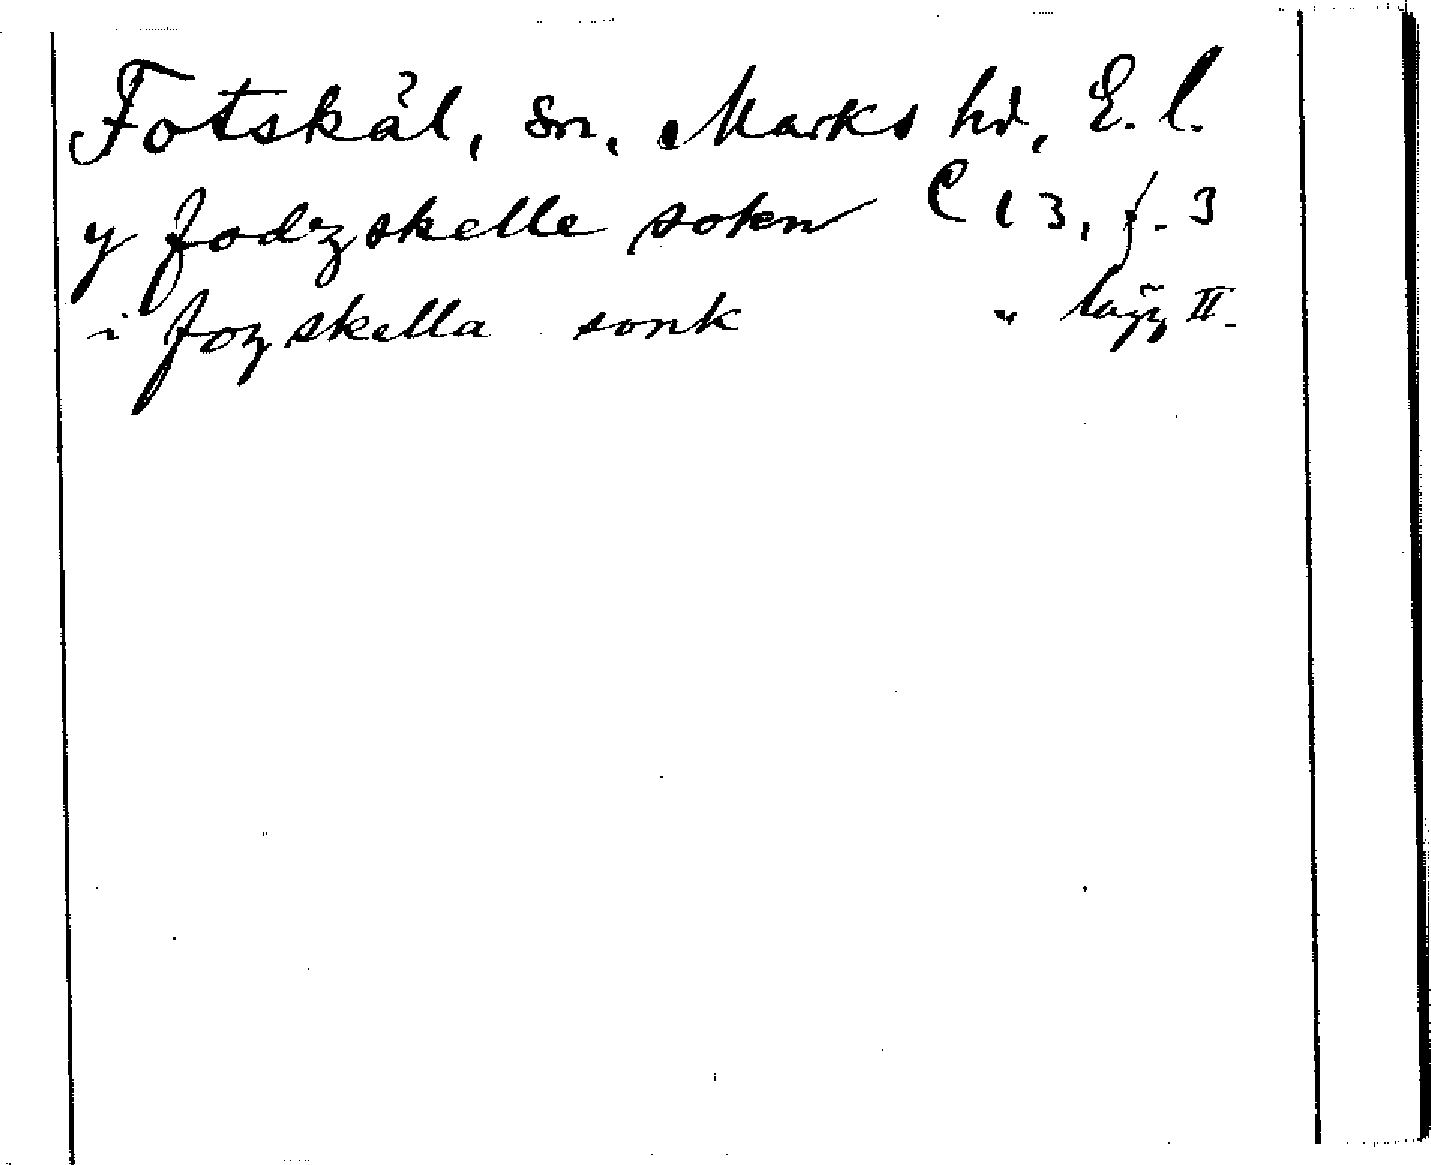 Fotskäl, sn, Marks hd, E. l.
y fodzskelle sokn C 13, f. 3
i fozskella sonk " lägg II.